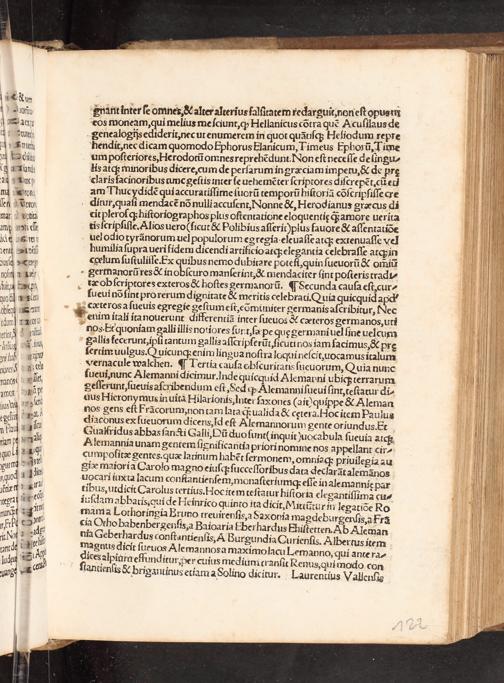 gnant inter se omnes, & alter alterius falsitatem redarguit, non est opus ut
eos moneam, qui melius me sciunt, cp Hellanicus cōtra quē Acusilaus de
genealogijs ediderit, nec ut enumerem in quot quātiscp Hesiodum repre
hendit, nec dicam quomodo Ephorus Elanicum, Timeus Ephorū, Time
um posteriores, Herodotū omnes reprehēdunt. Non est necesse de singu-
lis atcp minoribus dicere, cum de persarum in græciam impetu, & de pre
claris facinoribus tunc gestis inter se uehemēter scriptores discrepēt, cū eti
am Thucydidē qui accuratissime suorū temporū historiā cōscripsisse cre
ditur, quasi mendacē non nulli accusent, Nonne &, Herodianus græcus di
cit pleroscp historiographos plus ostentatione eloquentię q̄ amore uerita
tis scripsisse. Alios uero (sicut & Polibius asserit) plus fauore & assentatiōe
uel odio tyrānorum uel populorum egregia eleuasse atcp extenuasse vel
humilia supra ueri fidem dicendi artificio atcp elegantia celebrasse atcp in
cœlum sustulisse. Ex quibus nemo dubitare potest, quin sueuorū & omiū
germanorū res & in obscuro manserint, & mendaciter sint posteris tradi-
tæ ob scriptores exteros & hostes germanorū. ¶ Secunda causa est, cur
sueui nō sint pro rerum dignitate & meritis celebrati. Quia quicquid apd
cæteros a sueuis egregie gestum est, cōmuniter germanis ascribitur, Nec
enim itali ita nouerunt differentiā inter sueuos & cæteros germanos, uti
nos. Et quoniam galli illis notiores sunt, sæpe quę germani uel sine uel cum
gallis fecerunt, ipsi tantum gallis asscripserūt, sicuti nos iam facimus, & prę
sertim uulgus. Quicunqȝ enim lingua nostra loqui nescit, uocamus italum
vernacule walchen. ¶ Tertia causa obscuritatis sueuorum, Quia nunc
sueui, nunc Alemanni dicimur. Inde quicquid Alemanni ubicp terrarum
gesserunt, sueuis ascribendum est, Sed cp Alemanni sueui sint, testatur di-
uus Hieronymus in uita Hilarionis, Inter saxones (ait) quippe & Aleman
nos gens est Frācorum, non tam lata q̄ ualida & cętera. Hoc item Paulus
diaconus ex sueuorum dicens, Id est Alemannorum gente oriundus. Et
Gualfridus abbas sancti Galli, Dū duo sunt (inquit) uocabula sueuia atcp
Alemannia unam gentem significantia priori nomine nos appellant cir-
cumpositæ gentes. quæ latinum habēt sermonem, omniacp priuilegia au
giæ maiori a Carolo magno eiuscp successoribus data declarāt alemānos
uocari iuxta lacum constantiensem, monasteriumcp esse in alemannię par
tibus, ut dicit Carolus tertius. Hoc item testatur historia elegantissima cu-
iusdam abbatis, qui de Heinrico quinto ita dicit, Mittūtur in legatiōe Ro
mam a Lothoringia Bruno treuirensis, a Saxonia magdeburgensis, a Frā
cia Otho babenbergensis, a Baioaria Eberhardus Ehistetten. Ab Aleman
nia Geberhardus constantiensis, A Burgundia Curiensis. Albertus item
magnus dicit sueuos Alemannos a maximo lacu Lemanno, qui ante ra-
dices alpium effunditur, per cuius medium transit Renus, qui modo con
stantiensis & brigantinus etiam a Solino dicitur. Laurentius Vallensis
122